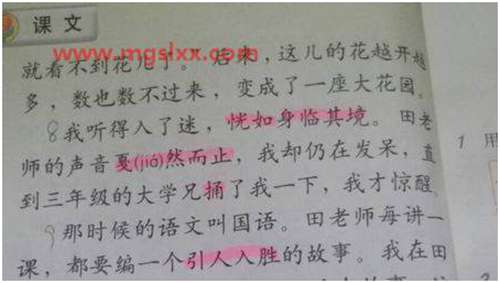 课文
www.mgslxx.com
就看不到花儿了。”后来，这儿的花越开越
多，数也数不过来，变成了一座大花园。
8我听得入了迷，恍如身临其境。田老
师的声音戛(jiá)然而止，我却仍在发呆，直
到三年级的大学兄捅了我一下，我才惊醒。
9那时候的语文叫国语。田老师每讲一
课，都要编一个引人入胜的故事。我在田
1 用